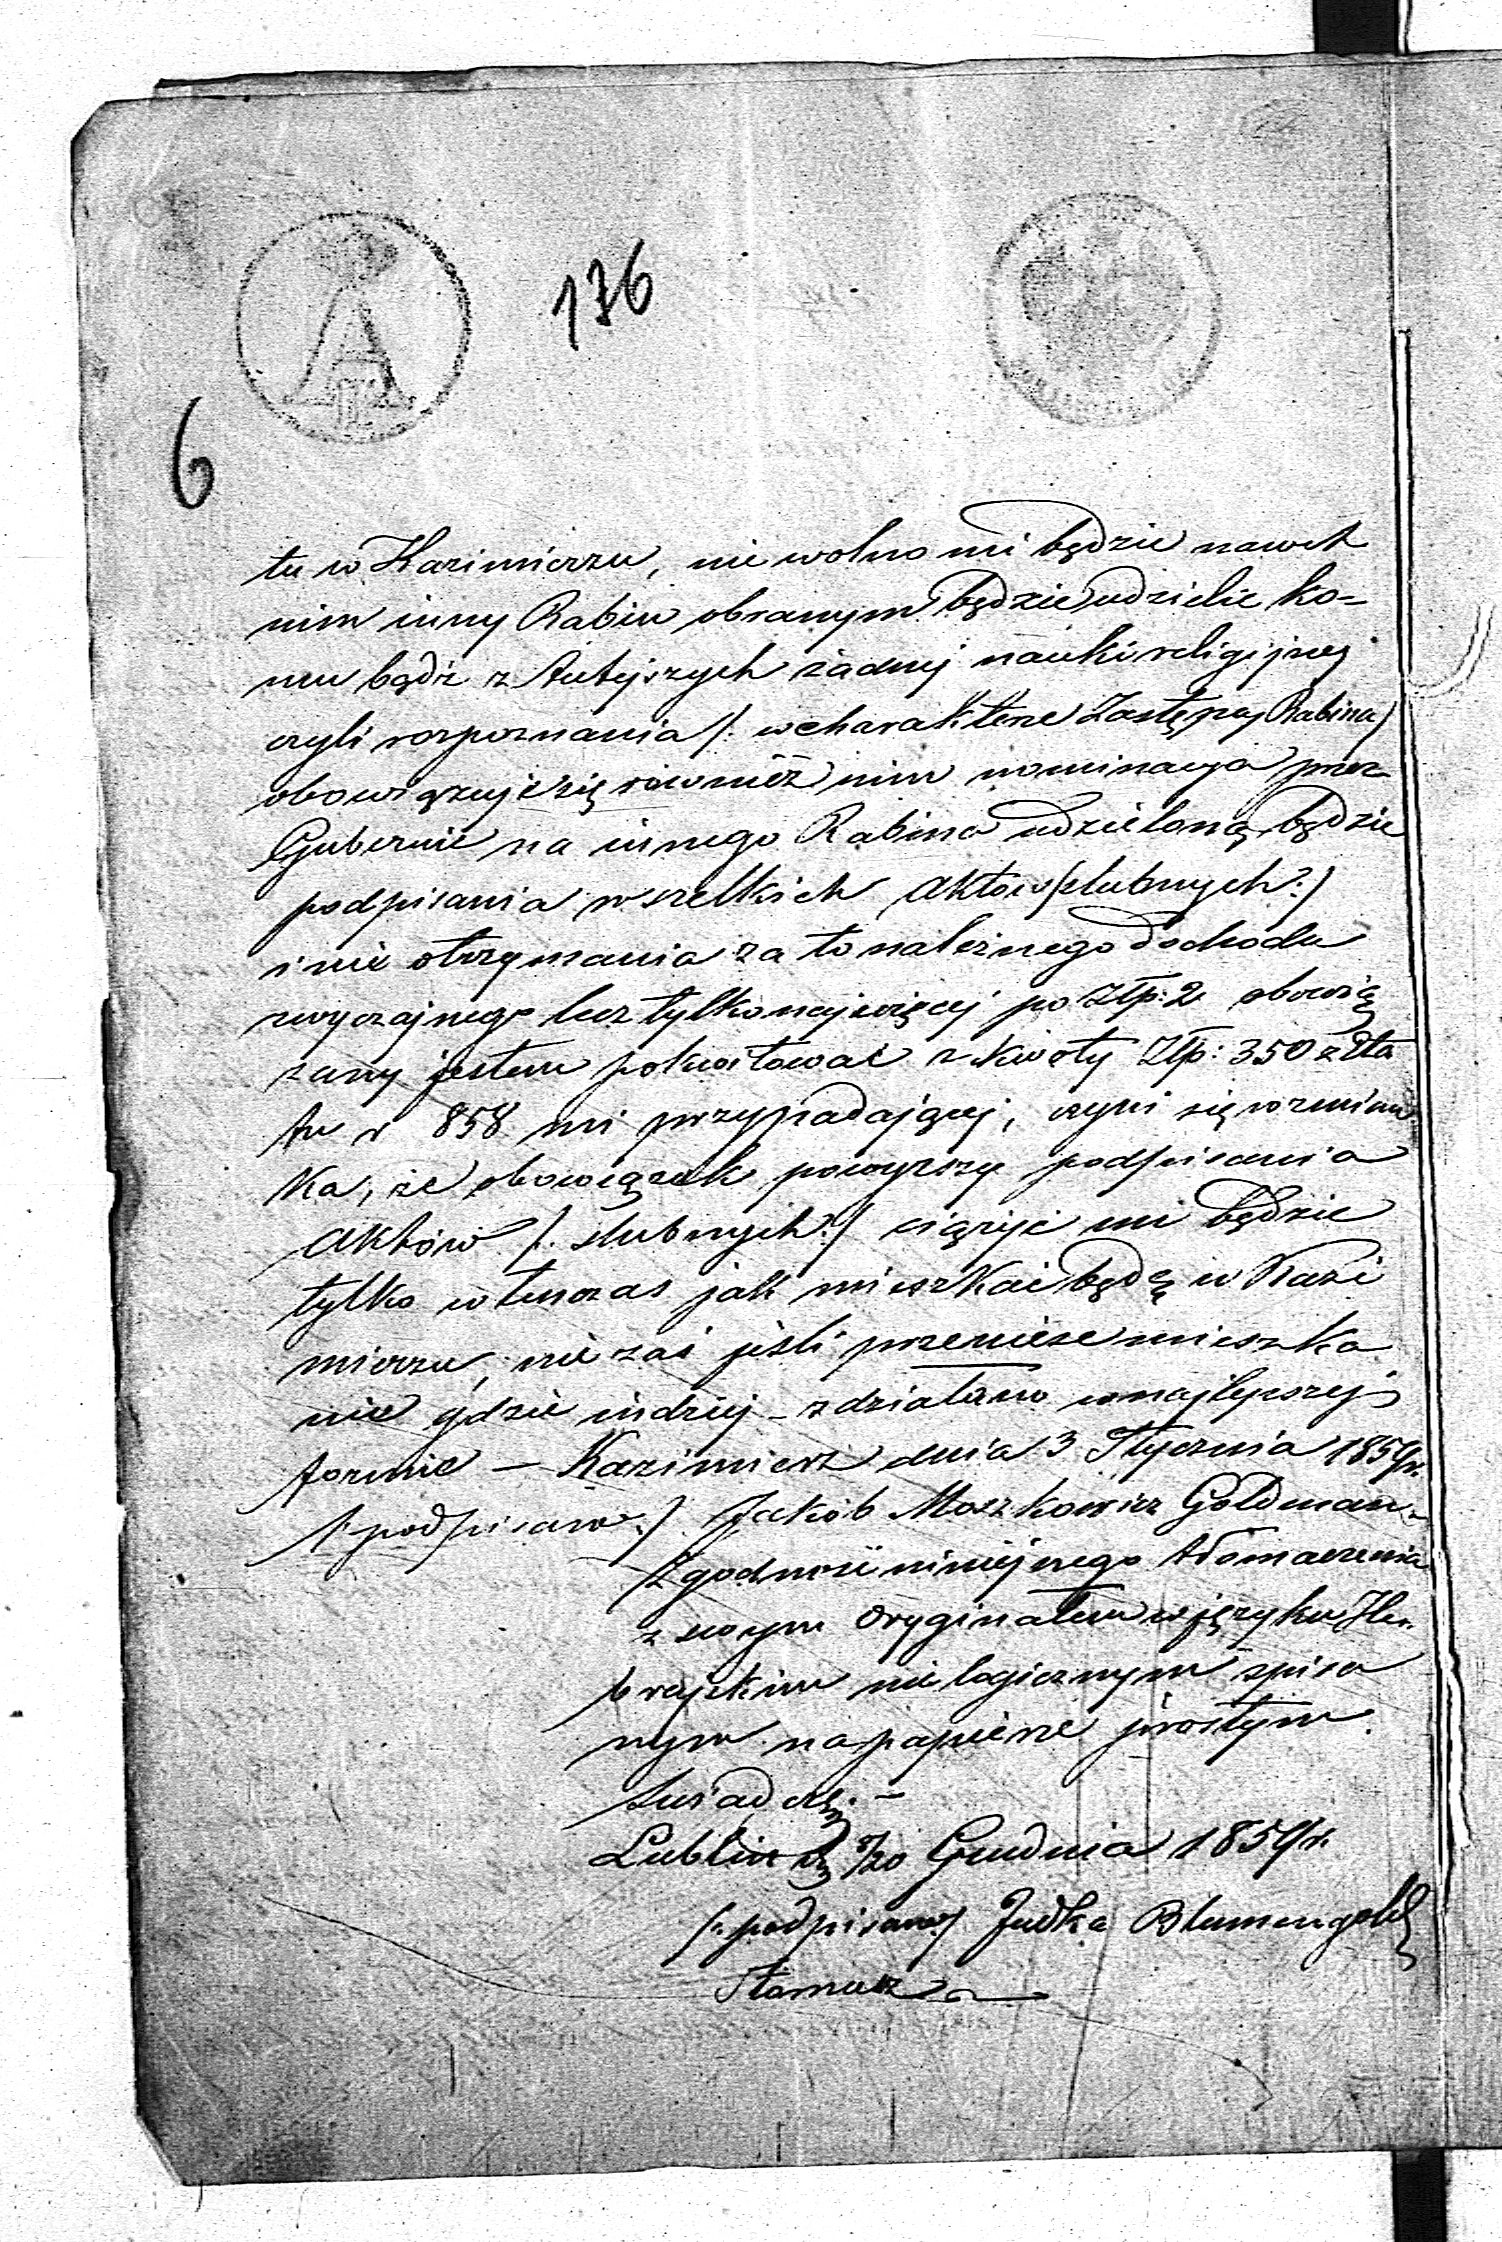 176
6
tu w Kazimierzu, nie wolno mi będzie nawet
nim inny Rabin obranym będzie udzielic ko-
mu bądź z tutejszych żadnej nauki religijnej
czyli rozpoznania /: w charakterze Zastępcy Rabina /
obowiązuje się również nim nominacya przez
Gubernie na innego Rabina udzieloną będzie
podpisania wszelkich Aktow /: slubnych :/
i nie otrzymania za to należnego dochodu
zwyczajnego lecz tylko najwięcej po Złp: 2 obowią
zany jestem pokwitować z kwoty Złp: 350 z
tu r 858 mi przypadającej, czyni się wzmian
ka, że obowiązek powyższy podpisania
Aktów /: slubnych :/ ciążyć mi będzie
tylko wtenczas jak mieszkać będę w Kazi
mierzu, nie zaś jeśli przeniese mieszka
nie gdzie indziej – zdziałano w najlepszej
formie – Kazimierz dnia 3 Stycznia 1859 r.
/: podpisano :/ Jakób Moszkowicz Goldman –
Zgodność niniejszego tłomaczenia
z swym Oryginałem w języku He-
brajskim nielogicznym spisa
nym na papierze prostym
świadczę. –
Lublin d 8/20 Grudnia 1859 r.
/: podpisano / Judka Blumengold
Tłomacz